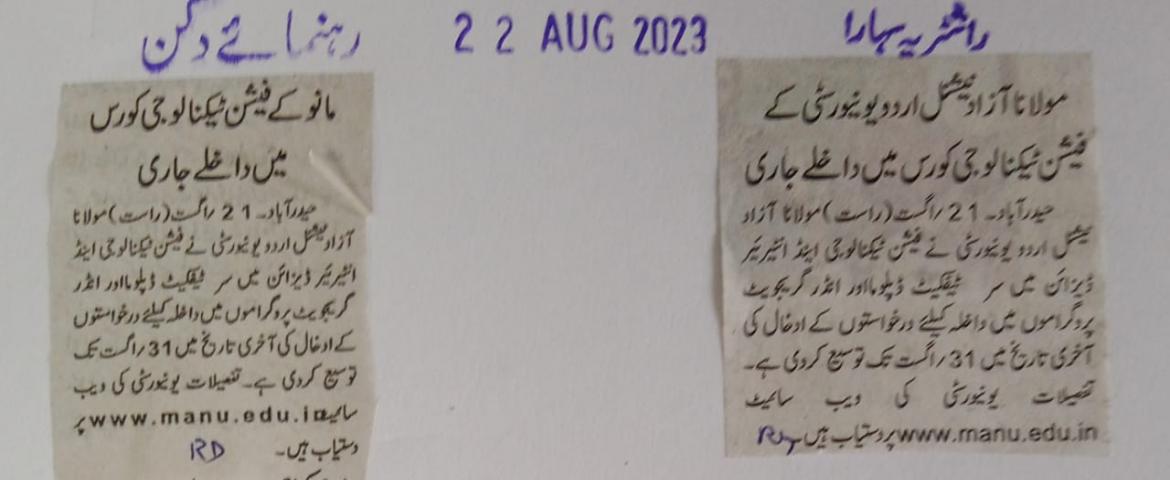 راشٹریہ سہارا
22 AUG 2023
رہنمائے دکن
مولانا آزاد نیشنل اردو یونیورسٹی کے
فیشن ٹیکنالوجی کورس میں داخلے جاری
حیدرآباد۔ 21 راگست (راست) مولانا آزاد
نیشنل اردو یونیورسٹی نے فیشن ٹیکنالوجی اینڈ انٹیریئر
ڈیزائن میں سر ٹیفکیٹ ڈپلوما اور انڈر گریجویٹ
پروگراموں میں داخلہ کیلئے درخواستوں کے ادخال کی
آخری تاریخ میں 31 راگست تک توسیع کردی ہے۔
تفصیلات یونیورسٹی کی ویب سائیٹ
www.manu.edu.in پر دستیاب ہیں۔
مانو کے فیشن ٹیکنالوجی کورس
میں داخلے جاری
حیدرآباد۔ 21 راگست (راست) مولانا
آزاد نیشنل اردو یونیورسٹی نے فیشن ٹیکنالوجی اینڈ
انٹیریئر ڈیزائن میں سر ٹیفکیٹ ڈپلوما اور انڈر
گریجویٹ پروگراموں میں داخلہ کیلئے درخواستوں
کے ادخال کی آخری تاریخ میں 31 راگست تک
توسیع کردی ہے۔ تفصیلات یونیورسٹی کی ویب
سائیٹ www.manu.edu.in پر
دستیاب ہیں۔
RD